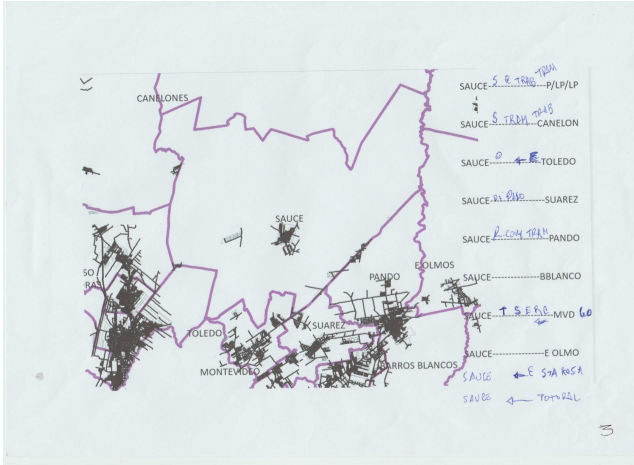 CANELONES
SAUCE
SO
RAS
PANDO
E OLMOS
TOLEDO
SUAREZ
MONTEVIDEO
BARROS BLANCOS
SAUCE S R TRAB TRAM P/LP/LP
SAUCE S TRAM TRAB CANELON
SAUCE O ← E TOLEDO
SAUCE SUAREZ
SAUCE R COM TRAM PANDO
SAUCE------------------BBLANCO
SAUCE T S E R MVD 60
SAUCE------------------E OLMO
SAUCE ← E STA ROSA
SAUCE ← TOTORAL
3